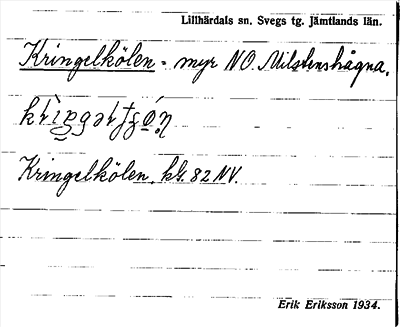 Lillhärdals sn. Svegs tg. Jämtlands län.
Kringelkölen - myr NO. Milstenshågna.
Kringelkölen, kbl. 82 NV.
Erik Eriksson 1934.